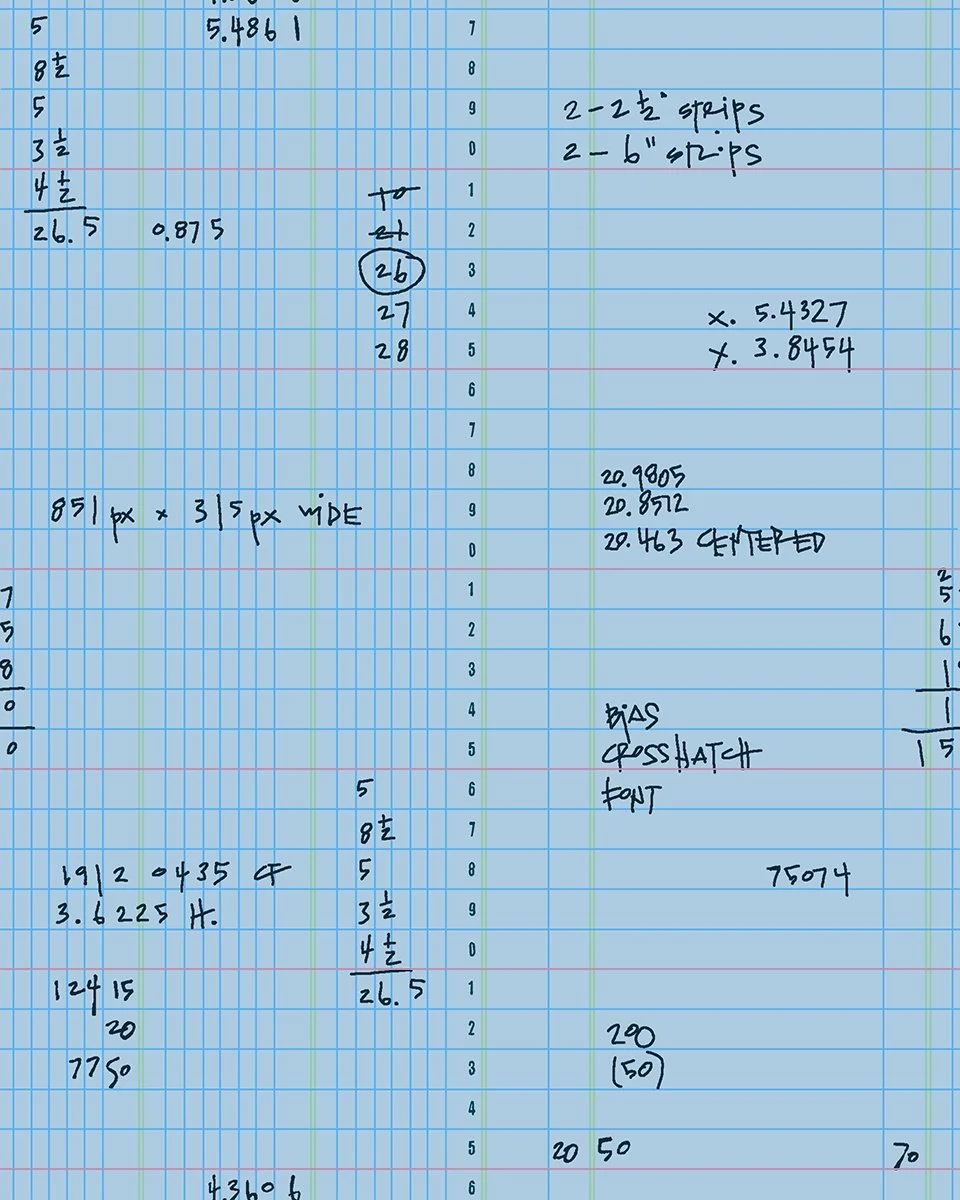 5
8 1/2
5
3 1/2
4 1/2
26.5
0.875
5.4861
10
21
26
27
28
851 px x 315 px WIDE
7
5
8
0
0
1912 0435 CF
3.6225 H.
124 15
20
7750
5
8 1/2
5
3 1/2
4 1/2
26.5
4.3606
7
8
9
0
1
2
3
4
5
6
7
8
9
0
1
2
3
4
5
6
7
8
9
0
1
2
3
4
5
6
2 - 2 1/2" strips
2 - 6" strips
x. 5.4327
y. 3.8454
20.9805
20.8512
20.463 CENTERED
BIAS
CROSSHATCH
FONT
75074
200
(50)
20 50
70
2
5
6
1
1
15